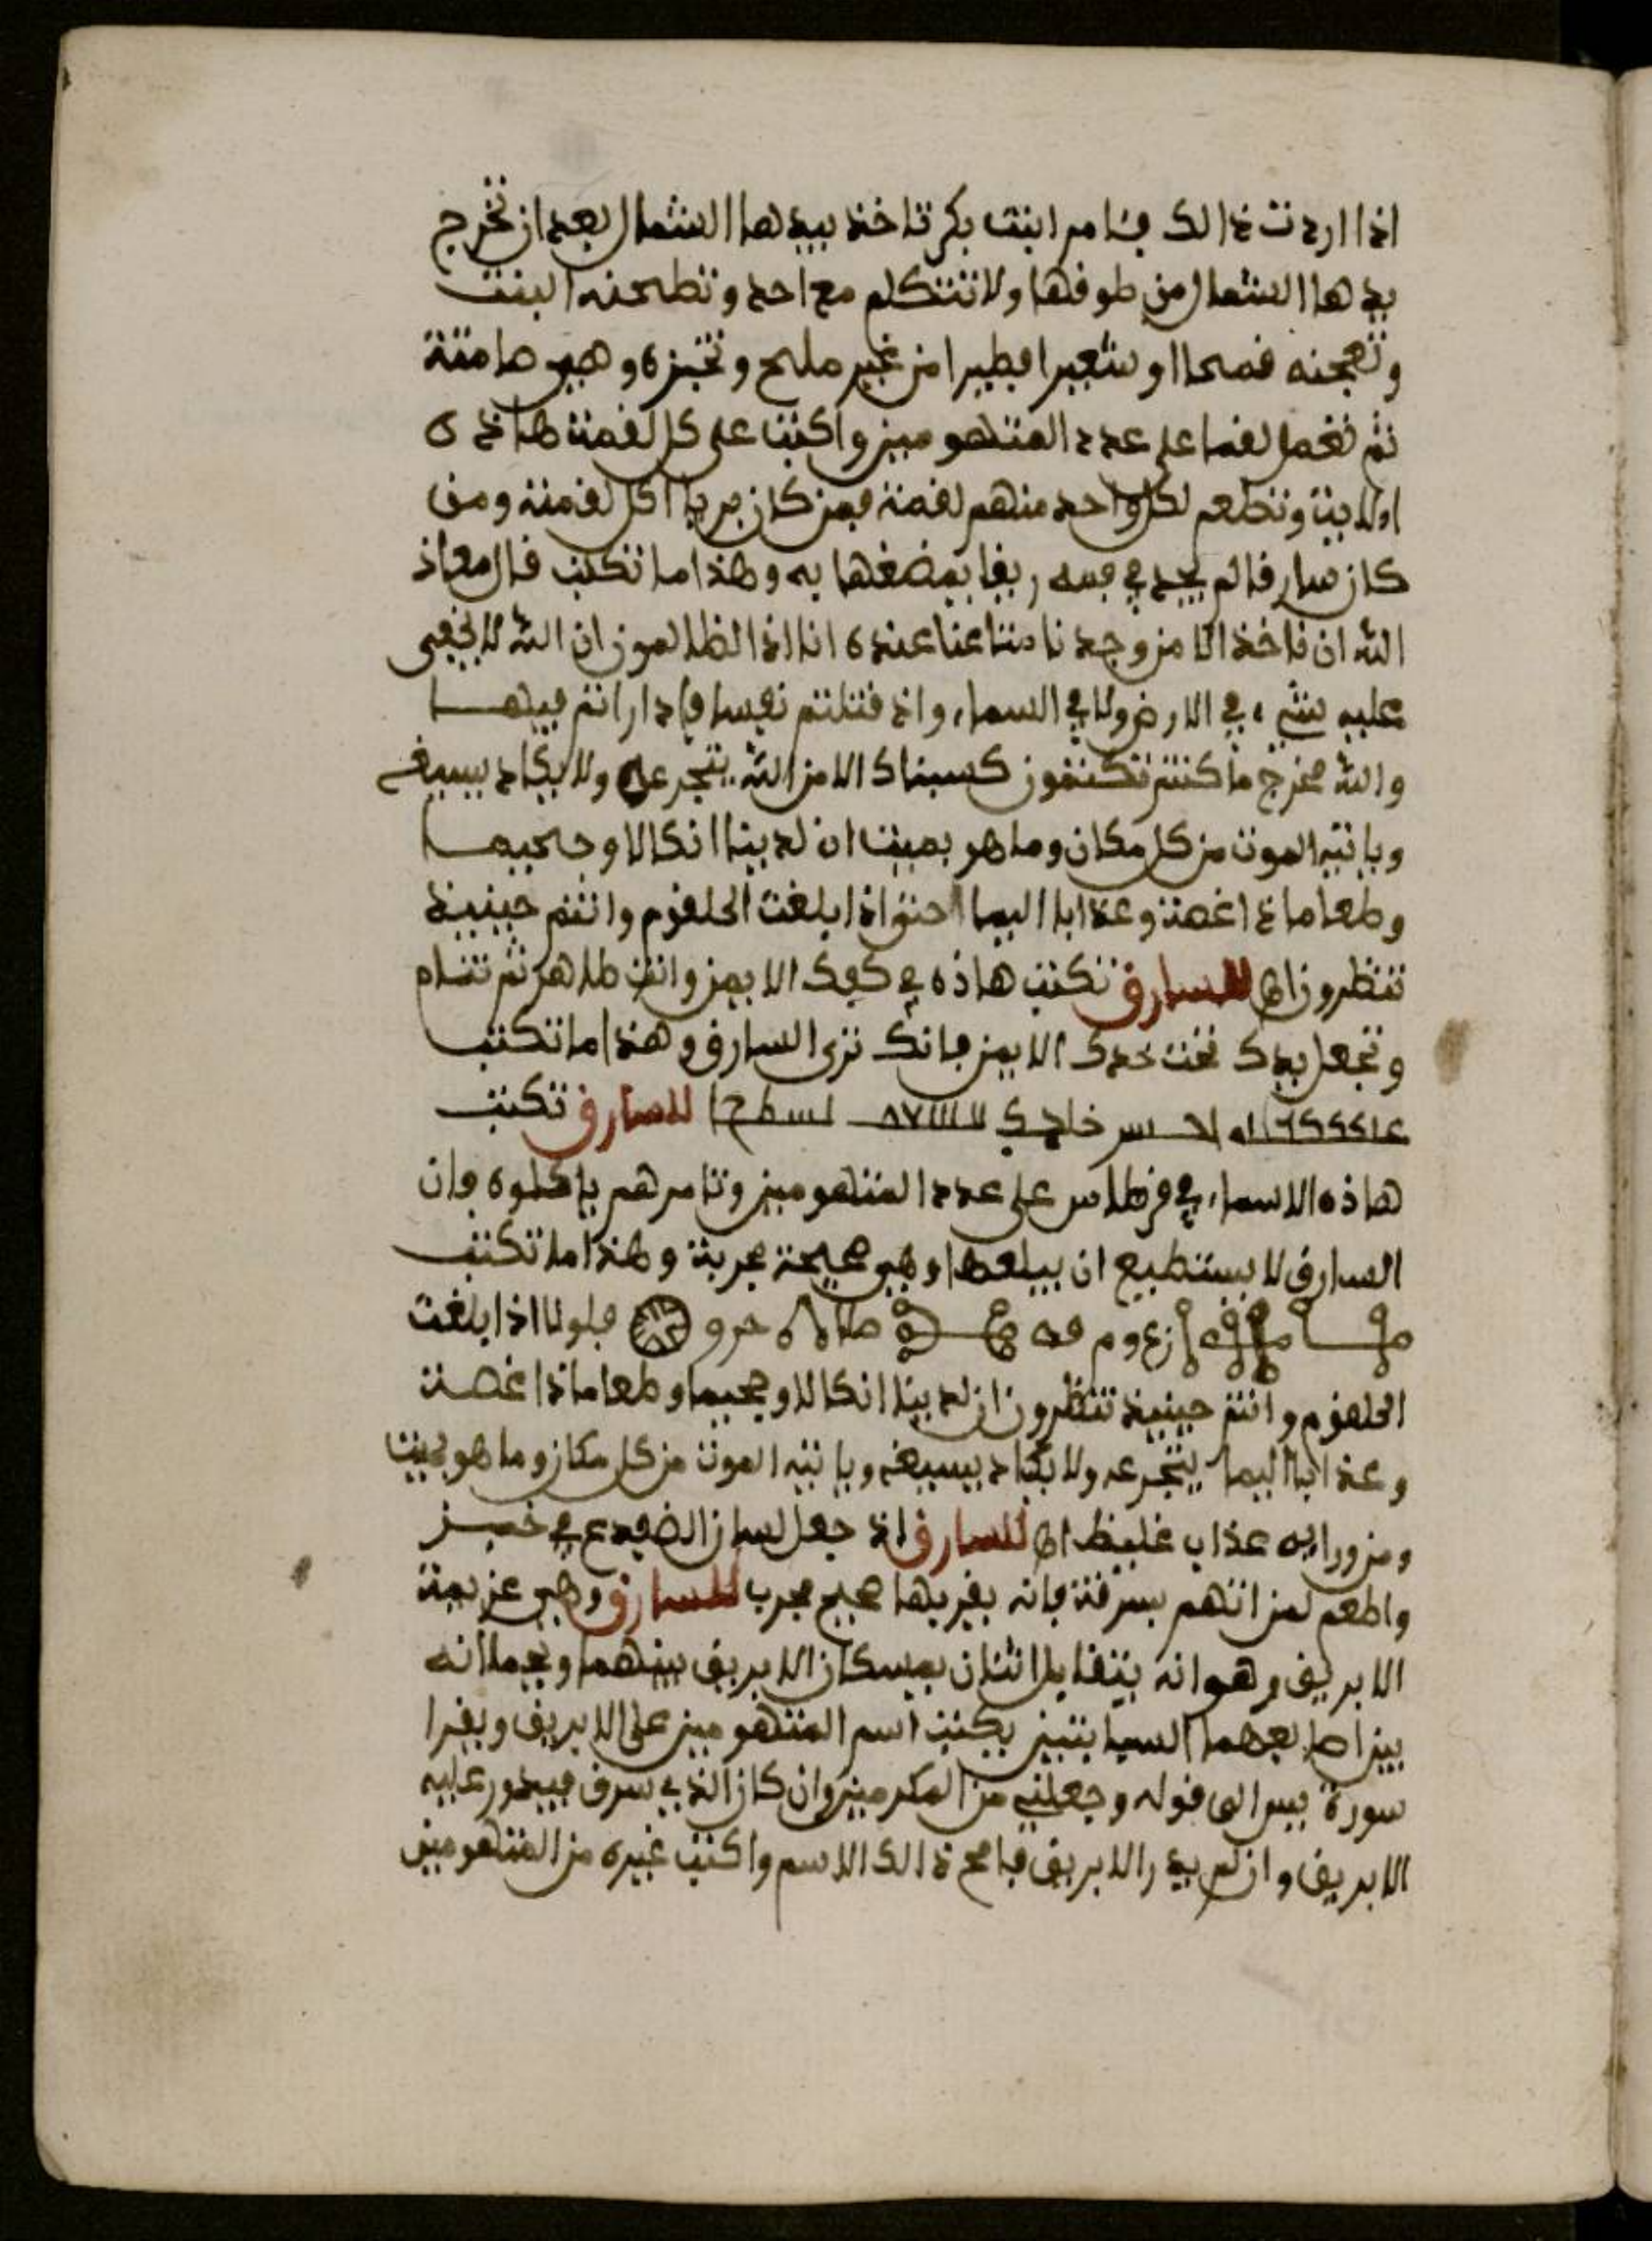 اذا اردت ذالك فتامر ابنت بكر تاخذ بيدها الشمال بعد ان تخرج
يدها الشمال من طوقها ولا تتكلم مع احد وتطحنه البنت
وتعجنه قمحا او شعيرا فطيرا من غير ملح وتخبزه وهي صامتة
ثم تعمل لقما على عدد المتهومين واكتب على كل لقمة هاذه
الايت وتطعم لكل واحد منهم لقمة فمن كان بريا اكل لقمته ومن
كان سارقا لم يجد في فمه ريقا يمضغها به وهذا ما تكتب قال معاذ
الله ان ناخذ الا من وجدنا متاعنا عنده انا اذا لظالمون ان الله لا يخفى
عليه شيء في الارض ولا في السماء واذ قتلتم نفسا فادارأتم فيها
والله مخرج ما كنتم تكتمون كسبناك الا من الله يتجرعه ولا يكاد يسيغه
وياتيه الموت من كل مكان وما هو بميت ان لدينا انكالا وجحيما
وطعاما ذا غصة وعذابا اليما حتى اذا بلغت الحلقوم وانتم حينيذ
تنظرون اه للسارق تكتب هاذه في كفك الايمن وانت طاهر ثم تنام
وتجعل يدك تحت خدك الايمن فانك ترى السارق وهذا ما تكتب
للسارق تكتب
هاذه الاسماء في قرطاس على عدد المتهومين وتامرهم ياكلوه فان
السارق لا يستطيع ان يبلعها وهي صحيحة مجربة وهذا ما تكتب
فلولا اذا بلغت
الحلقوم وانتم حينيذ تنظرون ان لدينا انكالا وجحيما وطعاما ذا غصة
وعذابا اليما يتجرعه ولا يكاد يسيغه وياتيه الموت من كل مكان وما هو بميت
ومن ورايه عذاب غليظ اه للسارق اذ جعل لسان الضفدع في خبز
واطعم لمن اتهم بسرقة فانه يقر بها صحيح مجرب للسارق وهي عزيمة
الابريق وهو انه يتقابل اثنان يمسكان الابريق بينهما ويحملانه
بين اصابعهما السبابتين يكتب اسم المتهومين على الابريق ويقرا
سورة يس الى قوله وجعلني من المكرمين وان كان الذي سرق فيدور عليه
الابريق وان لم يدر الابريق فامح ذالك الاسم واكتب غيره من المتهومين